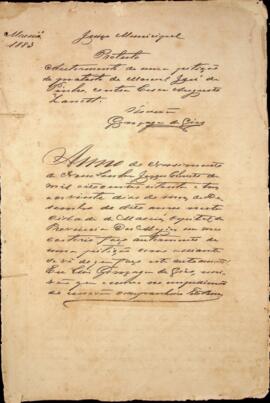 Maceió
1883
Juizo Municipal
Protesto
Autuamento de uma petição
de protesto de Manoel José de
Pinho contra Cesar Augusto
Escrivão
Gonzaga de Góes
Anno do Nascimento
de Nosso Senhor Jesus Christo de
mil oitocentos oitenta e tres
aos vinte dias do mez de De
zembro do dito anno nesta
Cidade de Maceió, Capital da
Provincia das Alagôas, em meu
cartorio faço autuamento de
uma petição
de que faço este autuamento.
Eu Luis Gonzaga de Góes,
escrivão